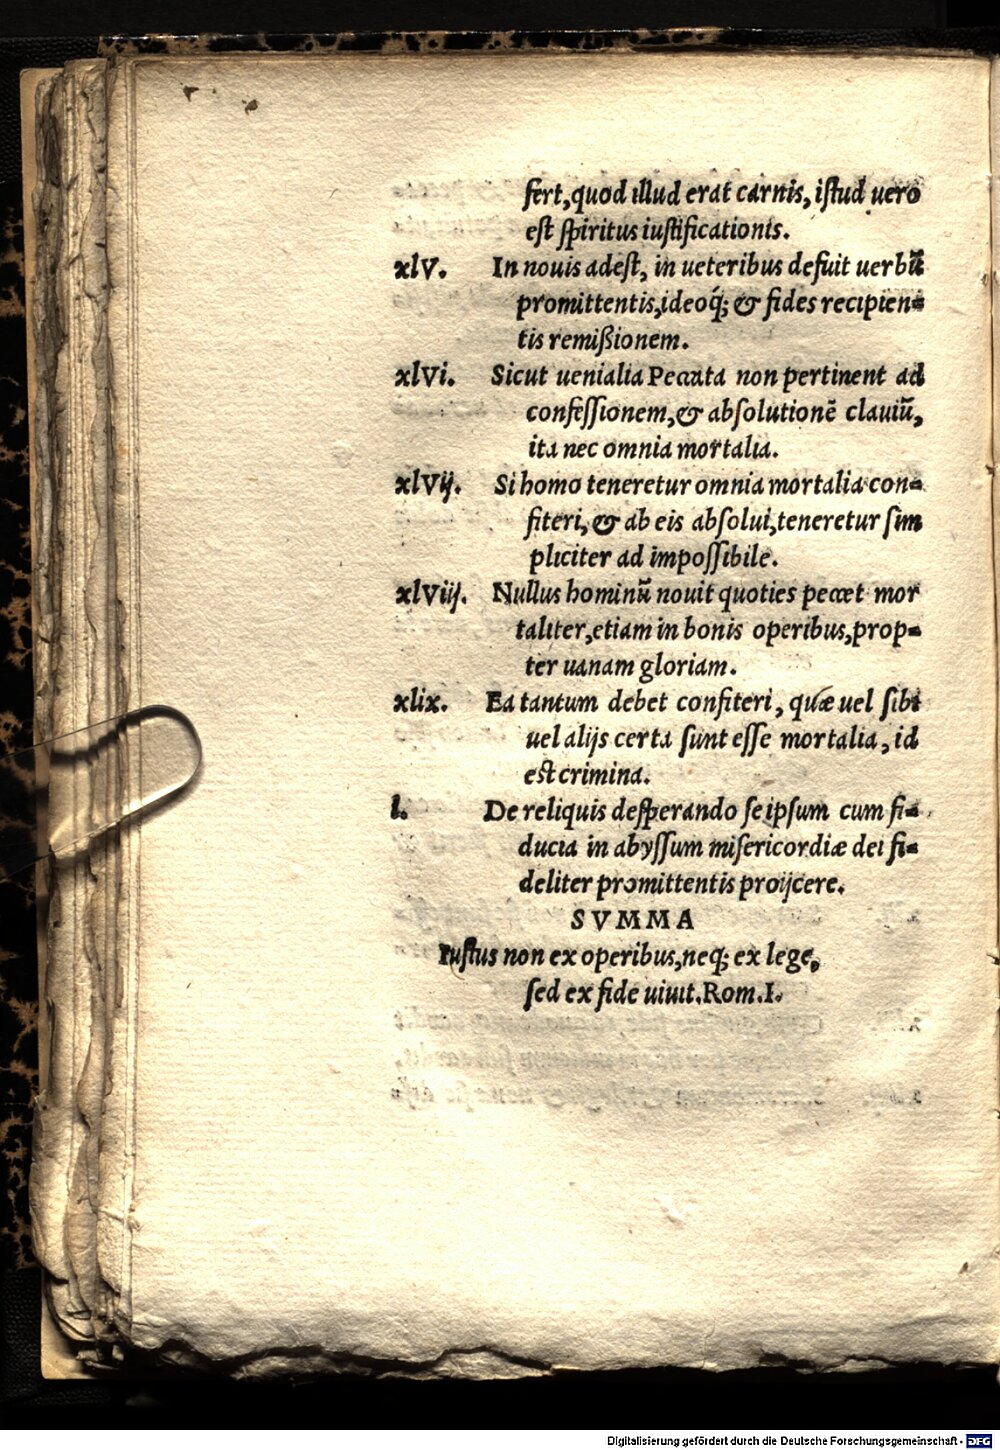 fert, quod illud erat carnis, iſtud uero
eſt ſpiritus iuſtificationis.
xlv. In nouis adeſt, in ueteribus defuit uerbũ
promittentis, ideoq́; & fides recipien-
tis remiſsionem.
xlvi. Sicut uenialia Peccata non pertinent ad
confeſſionem, & abſolutionẽ clauiũ,
ita nec omnia mortalia.
xlvij. Si homo teneretur omnia mortalia con-
fiteri, & ab eis abſolui, teneretur ſim
pliciter ad impoſſibile.
xlviij. Nullus hominũ nouit quoties peccet mor
taliter, etiam in bonis operibus, prop-
ter uanam gloriam.
xlix. Ea tantum debet confiteri, quæ uel ſibi
uel alijs certa ſunt eſſe mortalia, id
eſt crimina.
l. De reliquis deſperando ſe ipſum cum fi-
ducia in abyſſum miſericordiæ dei fi-
deliter promittentis proijcere.
SVMMA
Iuſtus non ex operibus, neq; ex lege,
ſed ex fide uiuit. Rom. I.
Digitalisierung gefördert durch die Deutsche Forschungsgemeinschaft - DFG